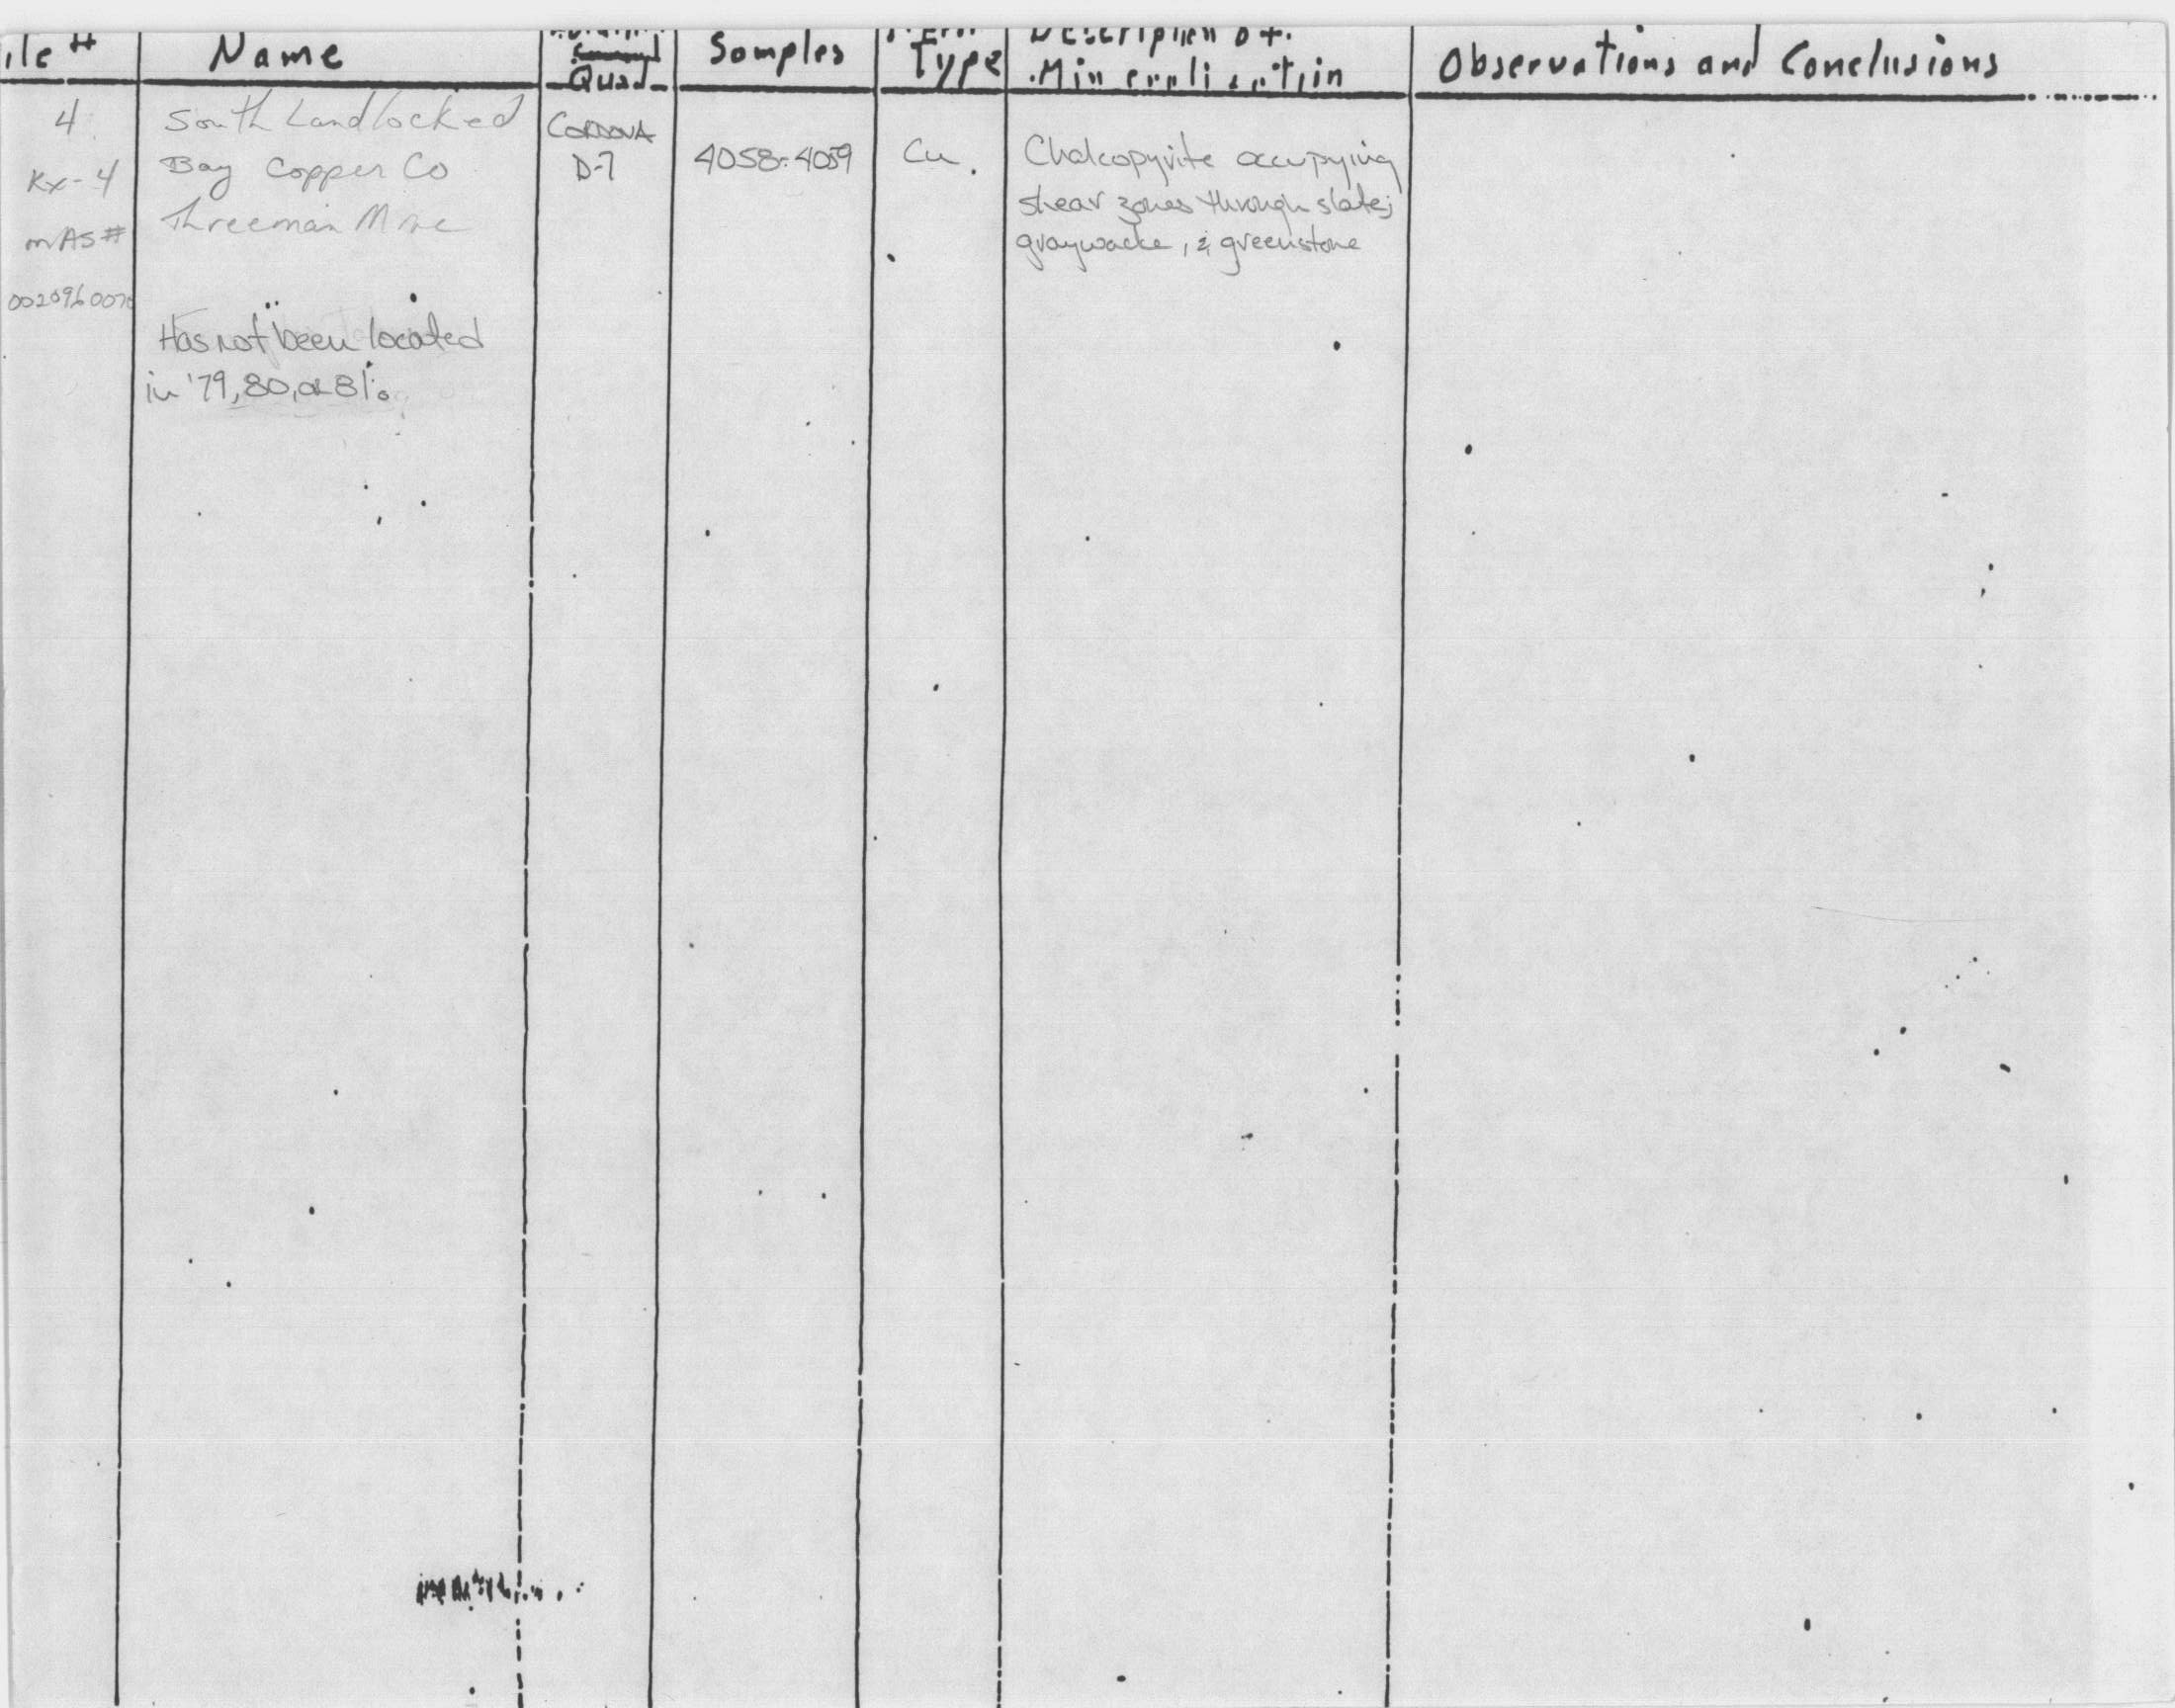 Name
Quad
Samples
Type
Description of
Mineralization
Observations and Conclusions
4
Kx-4
mAS#
South Landlocked
Bay Copper Co
Threeman Mine
Has not been located
in '79, 80, or 81.
CORDOVA
D-7
4058-4059
Cu.
Chalcopyrite occupying
shear zones through slate,
graywacke, & greenstone